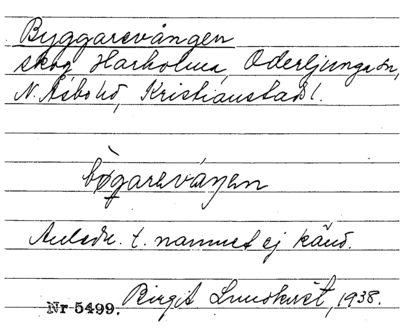 Byggarevången
skog Harholma, Oderljunga sn,
N. Åsbo hd, Kristianstads l.
bøgareváŋen
Anledn. t. namnet ej känd.
Nr 5499. Birgit Lundkvist, 1938.